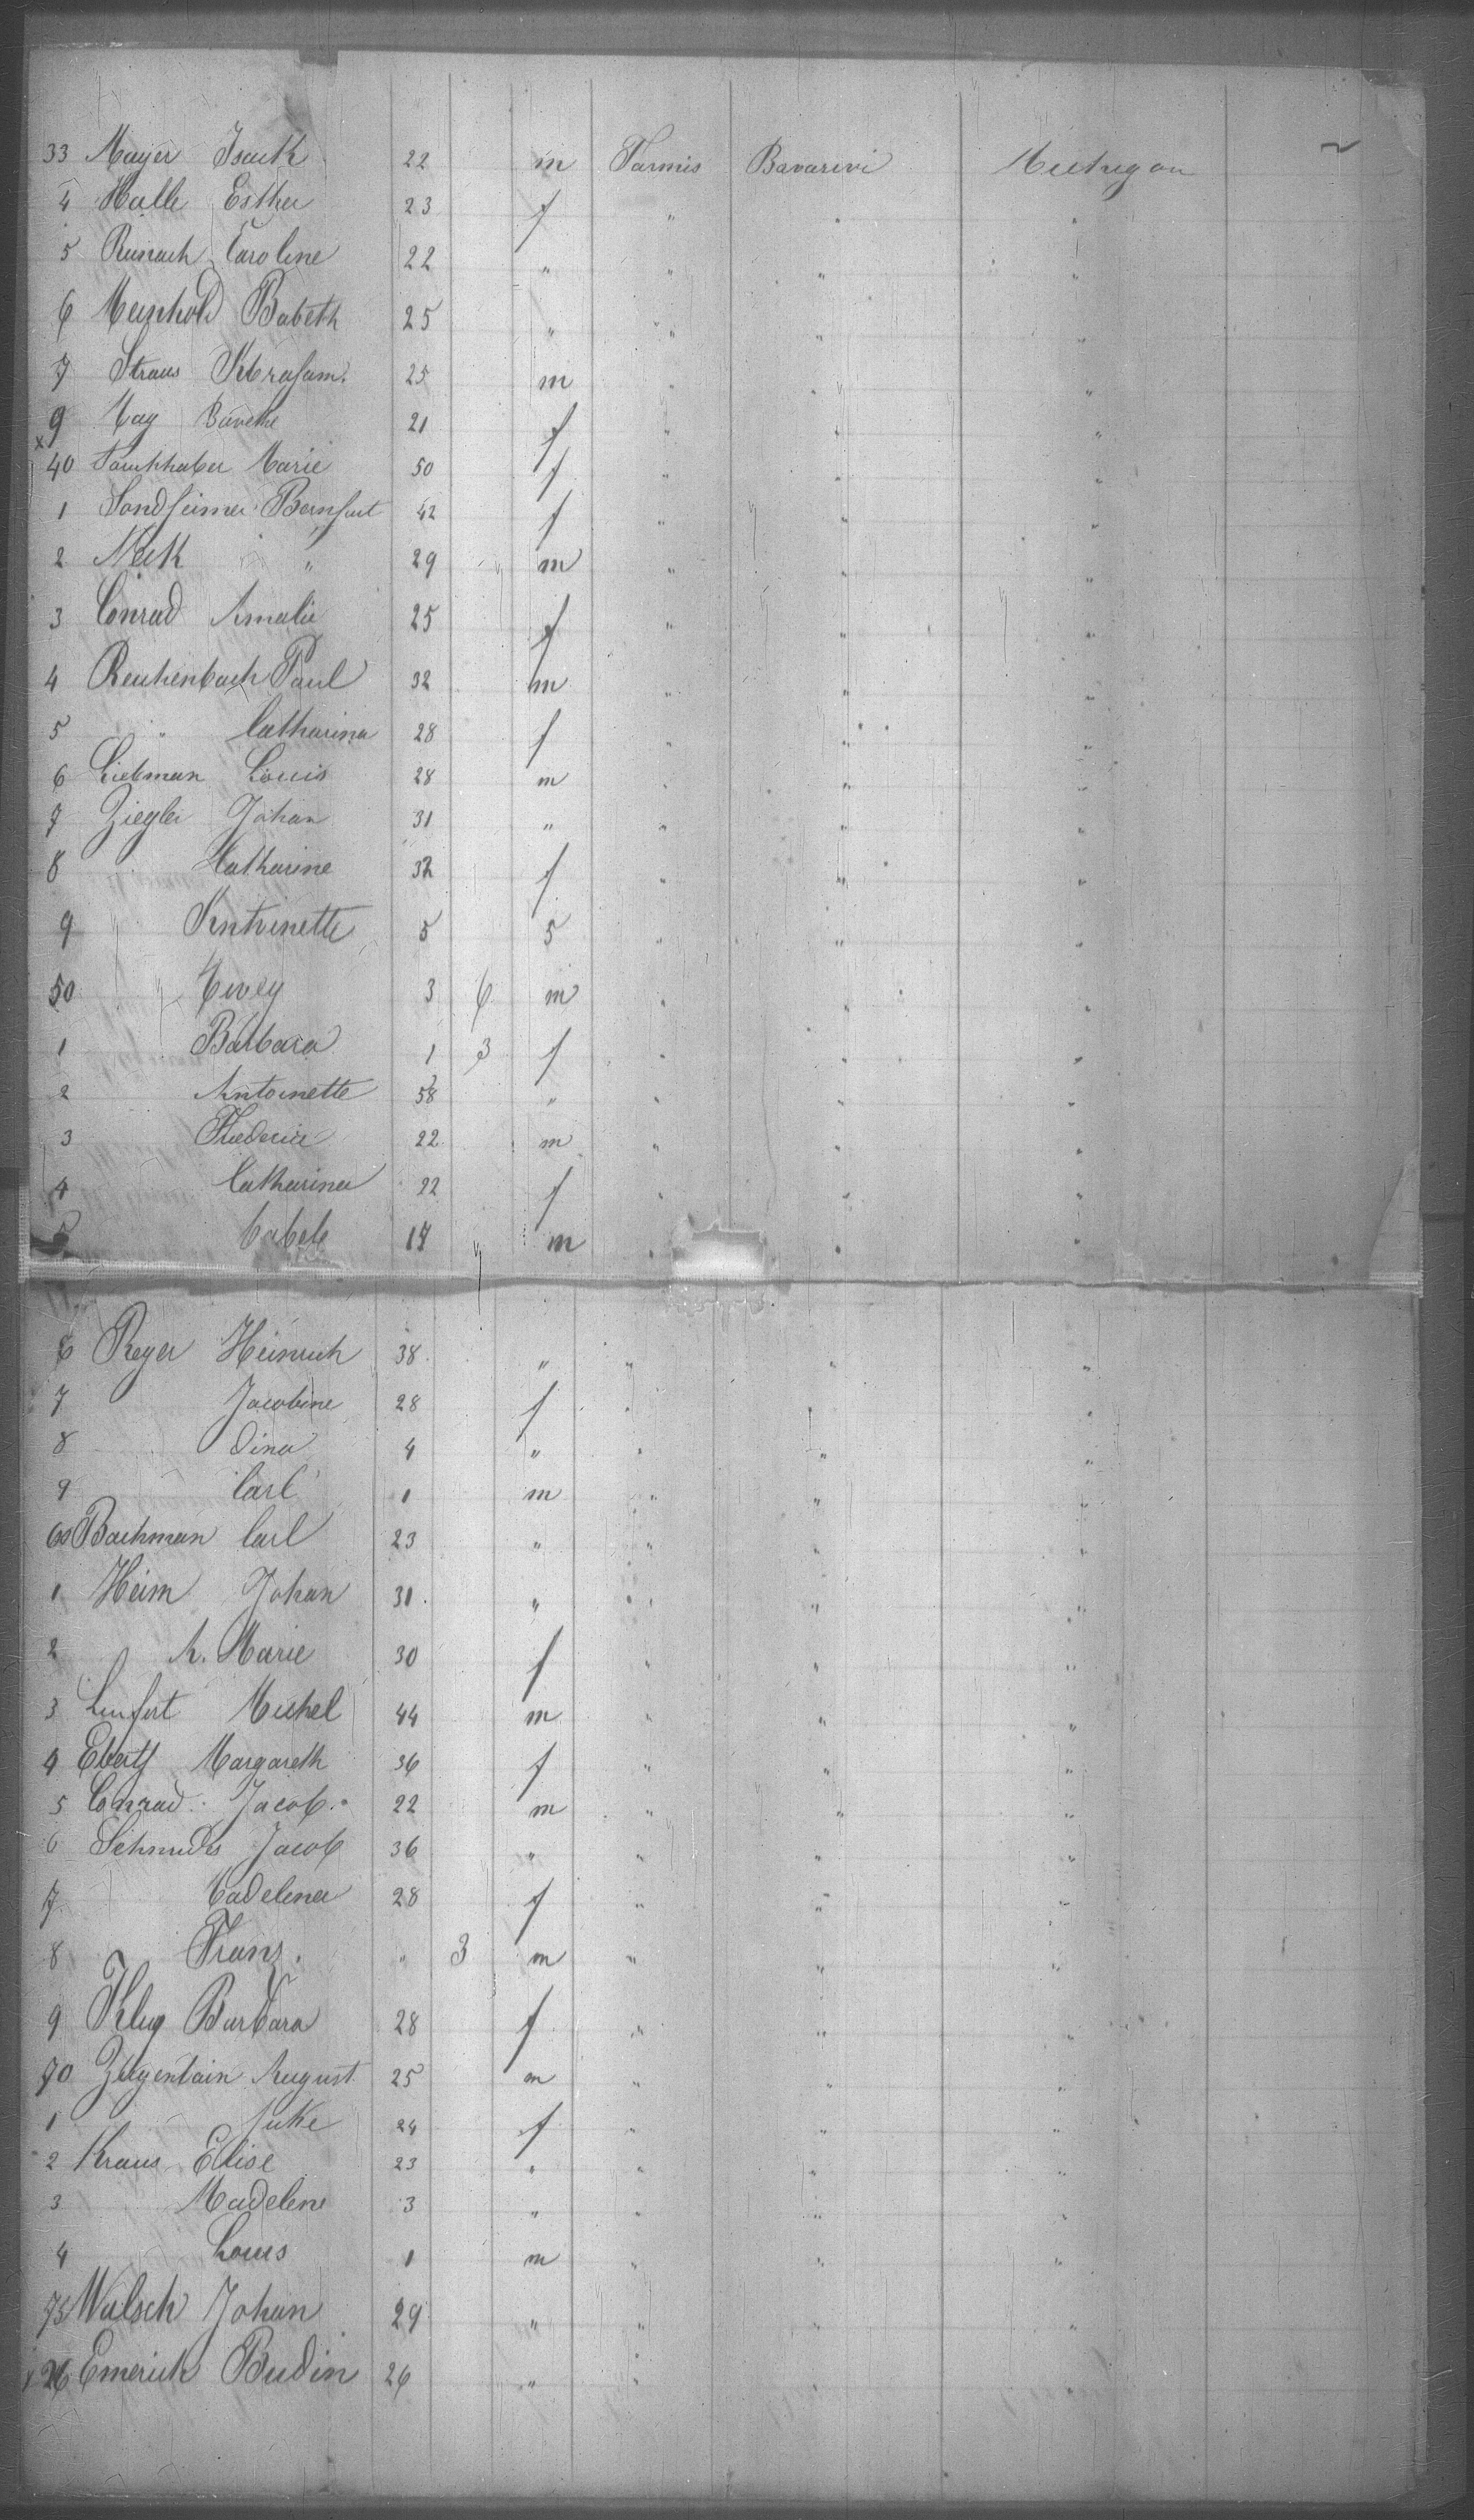 33 Mayer Isack 22 m Farmis Bavarivi Michigan
4 Halle Esther 23 f " " "
5 Caroline 22 " " " "
6 Babeth 25 " " " "
7 Straus Abraham 25 m " " "
9 May 21 f " " "
x 40 Marie 50 f " " "
1 Sondheimer 42 f " " "
2 " 29 m " " "
3 Conrad Amalie 25 f " " "
4 Reichenbach Paul 32 m " " "
5 " Catharina 28 f " " "
6 Liebman Louis 28 m " " "
7 Ziegler Johan 31 " " " "
8 Catharine 32 f " " "
9 Antoinette 5 5 " " "
50 3 6 m " " "
1 Barbara 1 3 f " " "
2 Antoinette 58 " " " "
3 Frederic 22 m " " "
4 Catharina 22 f " " "
5 17 m " " "
6 Reyer Heinrich 38 " " " "
7 Jacobine 28 f " " "
8 Dina 4 " " " "
9 Carl 1 m " " "
60 Bachman Carl 23 " " " "
1 Heim Johan 31 " " " "
2 A. Marie 30 f " " "
3 Michel 44 m " " "
4 Margareth 36 f " " "
5 Conrad Jacob 22 m " " "
6 Jacob 36 " " " "
7 Madelena 28 f " " "
8 Franz " 3 m " " "
9 Klug Barbara 28 f " " "
70 August 25 m " " "
1 24 f " " "
2 Kraus Elise 23 " " " "
3 Madelene 3 " " " "
4 Louis 1 m " " "
75 Walsch Johan 29 " " " "
x 76 Emerich Budin 26 " " " "